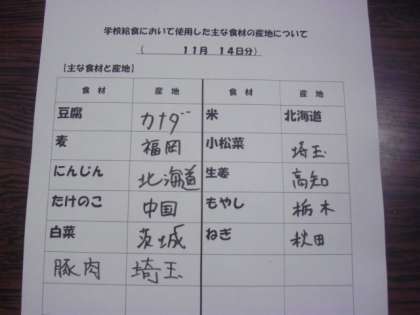 学校給食において使用した主な食材の産地について
（　11月　14日分）
［主な食材と産地］
食材　産地　食材　産地
豆腐　カナダ　米　北海道
麦　福岡　小松菜　埼玉
にんじん　北海道　生姜　高知
たけのこ　中国　もやし　栃木
白菜　茨城　ねぎ　秋田
豚肉　埼玉